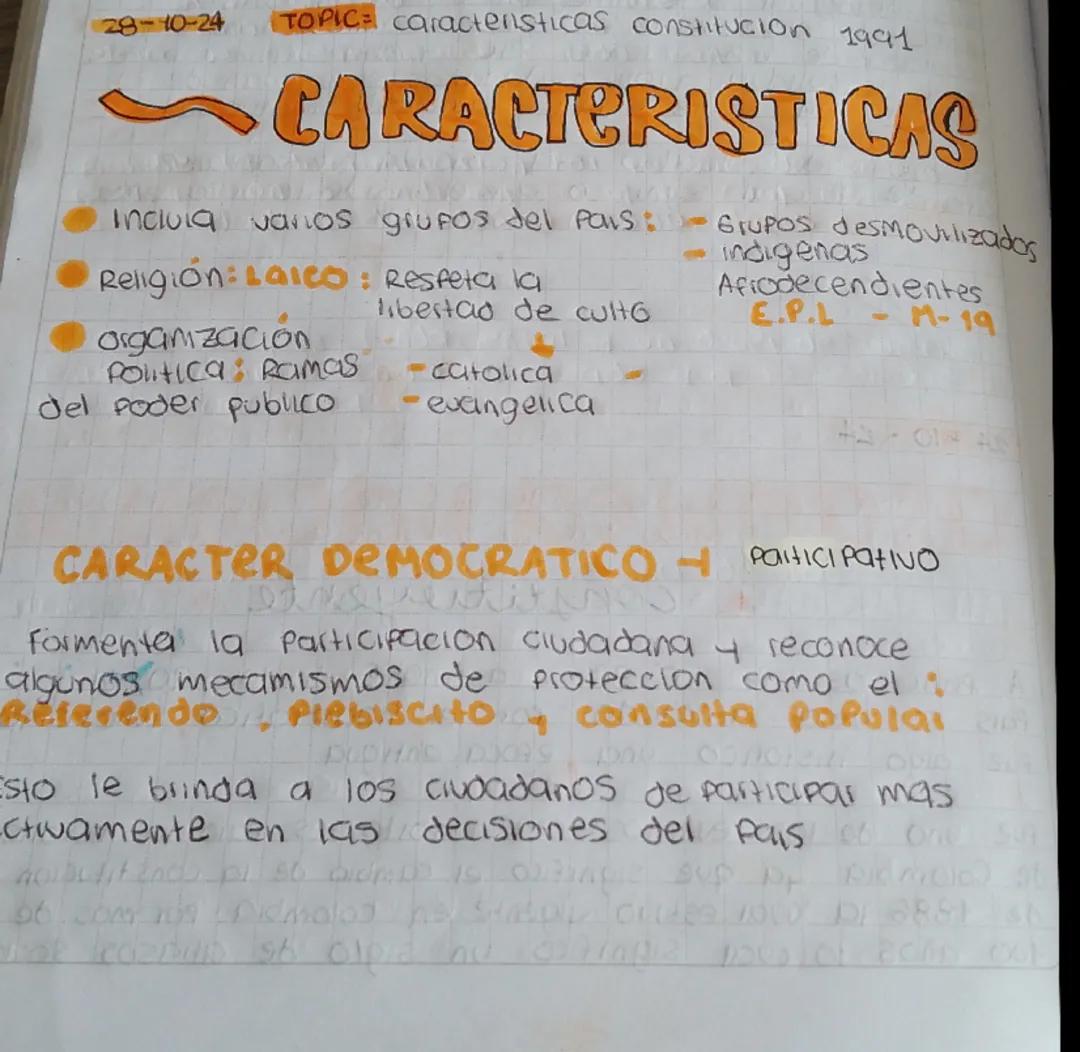 28-10-24 TOPIC: caracteristicas constitucion 1991
CARACTERISTICAS
Incluia varios grupos del Pais: - Grupos desmovilizados
- indigenas
Afrodecendientes
E.P.L - M-19
Religión: Laico: Respeta la
libertad de culto
- catolica
- evangelica
organización
Politica: Ramas
del Poder publico
CARACTER DEMOCRATICO → Participativo
Formenta la Participacion ciudadana y reconoce
algunos mecamismos de Proteccion como el:
Referendo, Plebiscito y consulta Popular
Esto le brinda a los ciudadanos de participar mas
ctivamente en las decisiones del Pais